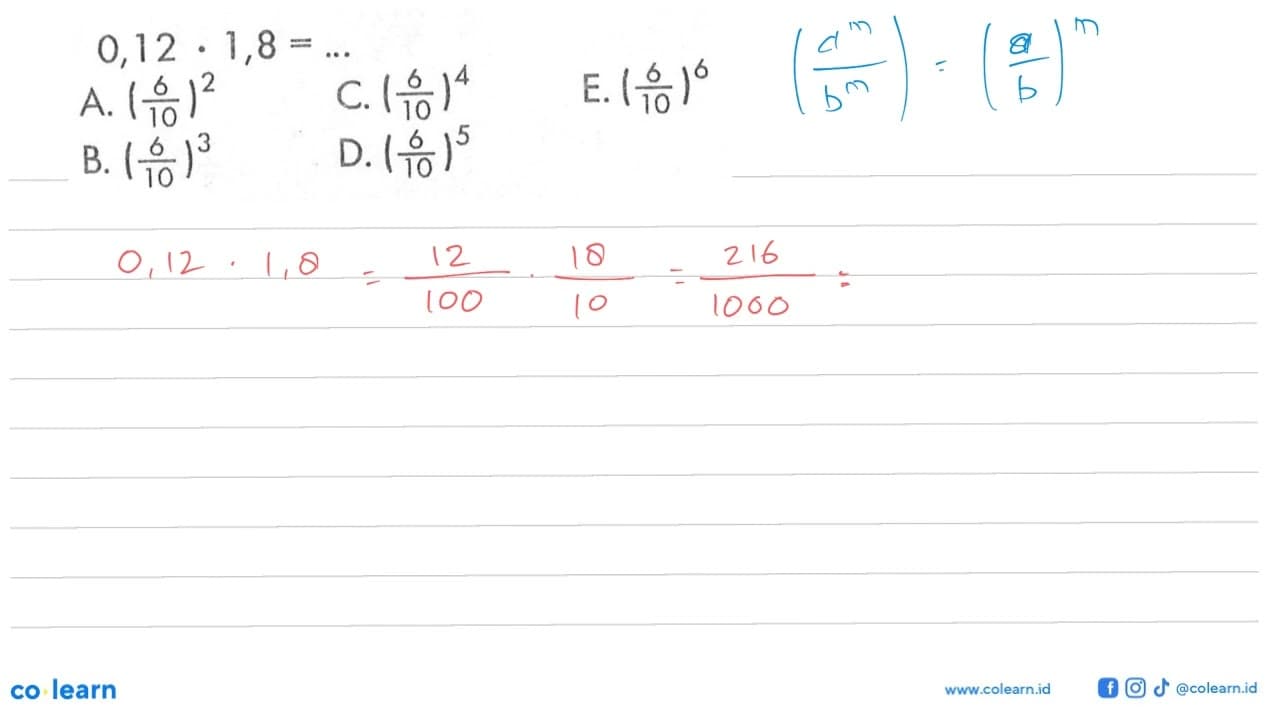 0,12 · 1,8 = ...
A. (6/10)^2 C. (6/10)^4 E. (6/10)^6
B. (6/10)^3 D. (6/10)^5
(a^m/b^m) = (a/b)^m
0,12 · 1,8 = 12/100 · 18/10 = 216/1000 =
co·learn
www.colearn.id
@colearn.id